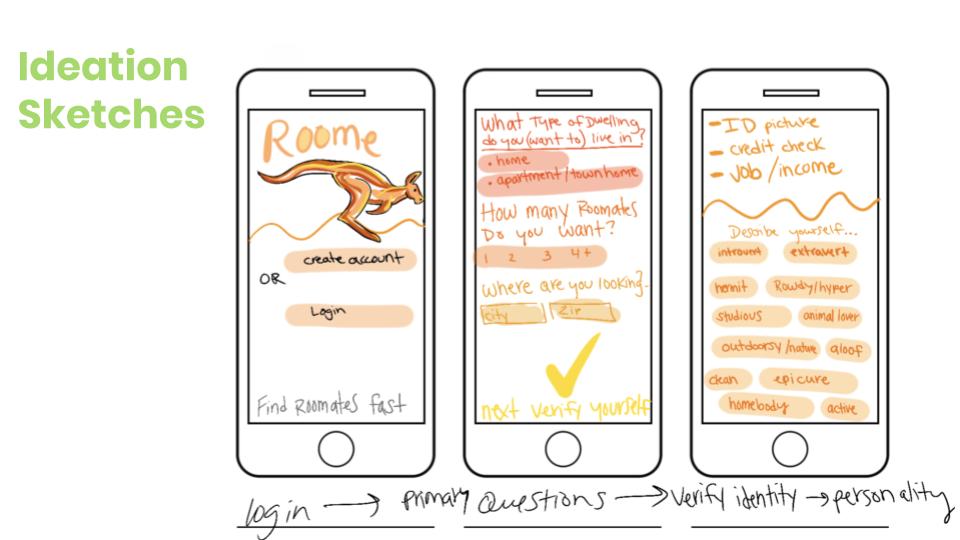 Ideation
Sketches
Roome
create account
OR
Login
Find Roomates fast
What Type of Dwelling
do you (want to) live in?
• home
• apartment/townhome
How many Roomates
Do you want?
1 2 3 4+
Where are you looking?
city Zir
next verify yourself
- ID picture
- credit check
- Job/income
Describe yourself...
introvert extravert
hermit Rowdy/hyper
studious animal lover
outdoorsy/nature aloof
clean epicure
homebody active
login → primary questions → verify identity → personality